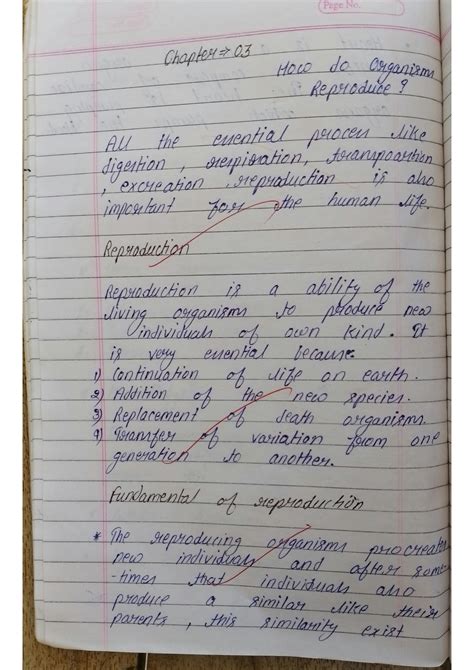 Page No.
Chapter ⇒ 03
How do Organisms
Reproduce ?
All the essential process like
digestion , respiration, transpoartion
, excreation , reproduction is also
important for the human life.
Reproduction
Reproduction is a ability of the
living organisms to produce new
individuals of own kind. It
is very essential because
1) Continuation of life on earth.
2) Addition of the new species.
3) Replacement of death organisms.
4) Transfer of variation from one
generation to another.
Fundamental of reproduction
* The reproducing organisms procreate
new individuals and after some
-times that individuals also
produce a similar like their
parents , this similarity exist